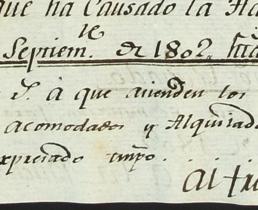 que ha Causado la
Septiem.re de 1802.
S. à que atienden los
acomodados y Alquilad
expresado tmpo.
al